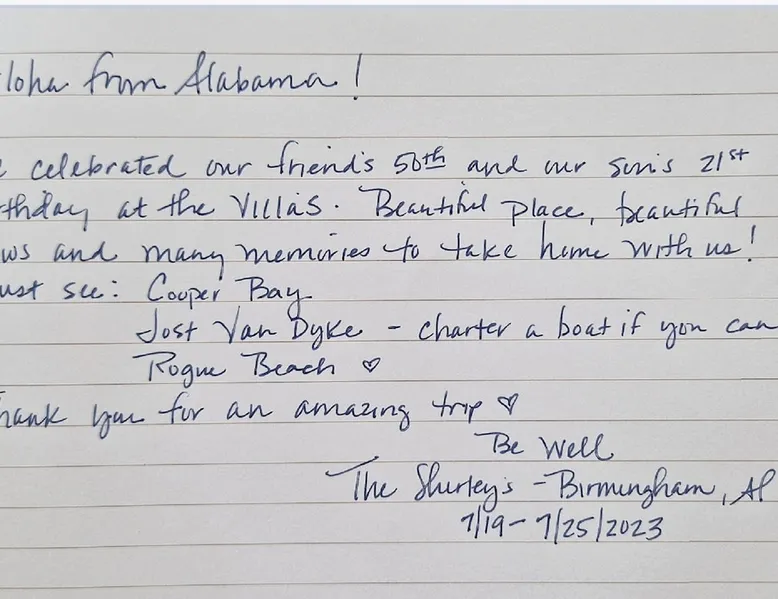 loha from Alabama!
celebrated our friend's 50th and our son's 21st
thday at the Villas. Beautiful place, beautiful
ws and many memories to take home with us!
ust see: Cooper Bay
Jost Van Dyke - charter a boat if you can
Rogue Beach ♡
hank you for an amazing trip ♡
Be Well
The Shurley's - Birmingham, Al
7/19 - 7/25/2023